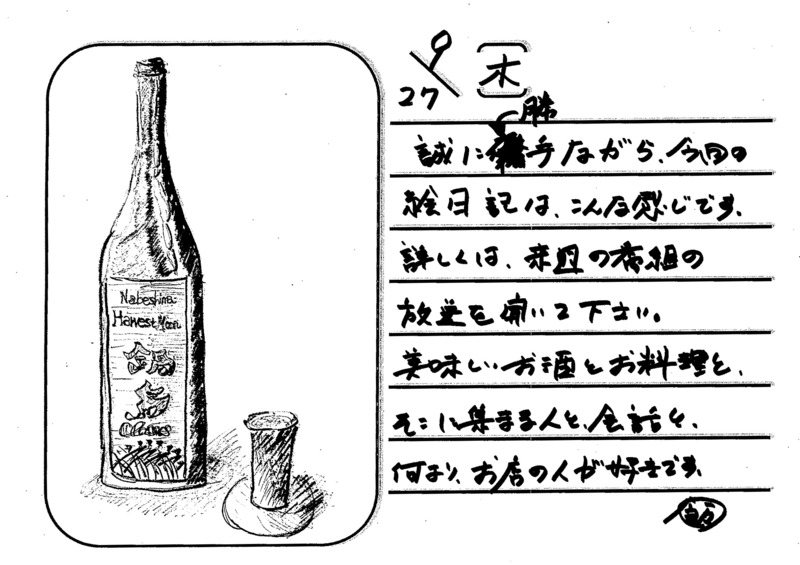 9/27 [木]
勝
誠に手ながら、今回の
絵日記は、こんな感じです。
詳しくは、来週の番組の
放送を聞いて下さい。
美味しいお酒とお料理と、
そこに集まる人と、会話と、
何より、お店の人が好きです。
Nabeshima
Harvest Moon
鍋
島